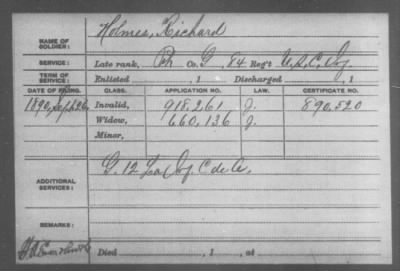 NAME OF SOLDIER: Holmes, Richard
SERVICE: Late rank, Pt Co. G, 84 Reg't U.S.C. Inf.
TERM OF SERVICE: Enlisted , 1 Discharged , 1
DATE OF FILING. CLASS. APPLICATION NO. LAW. CERTIFICATE NO.
1890, Sept 26 Invalid, 918,261 J. 890,520
Widow, 660,136 J.
Minor,
ADDITIONAL SERVICES: G. 12 La Inf. C de A.
REMARKS:
Died , 1 , at